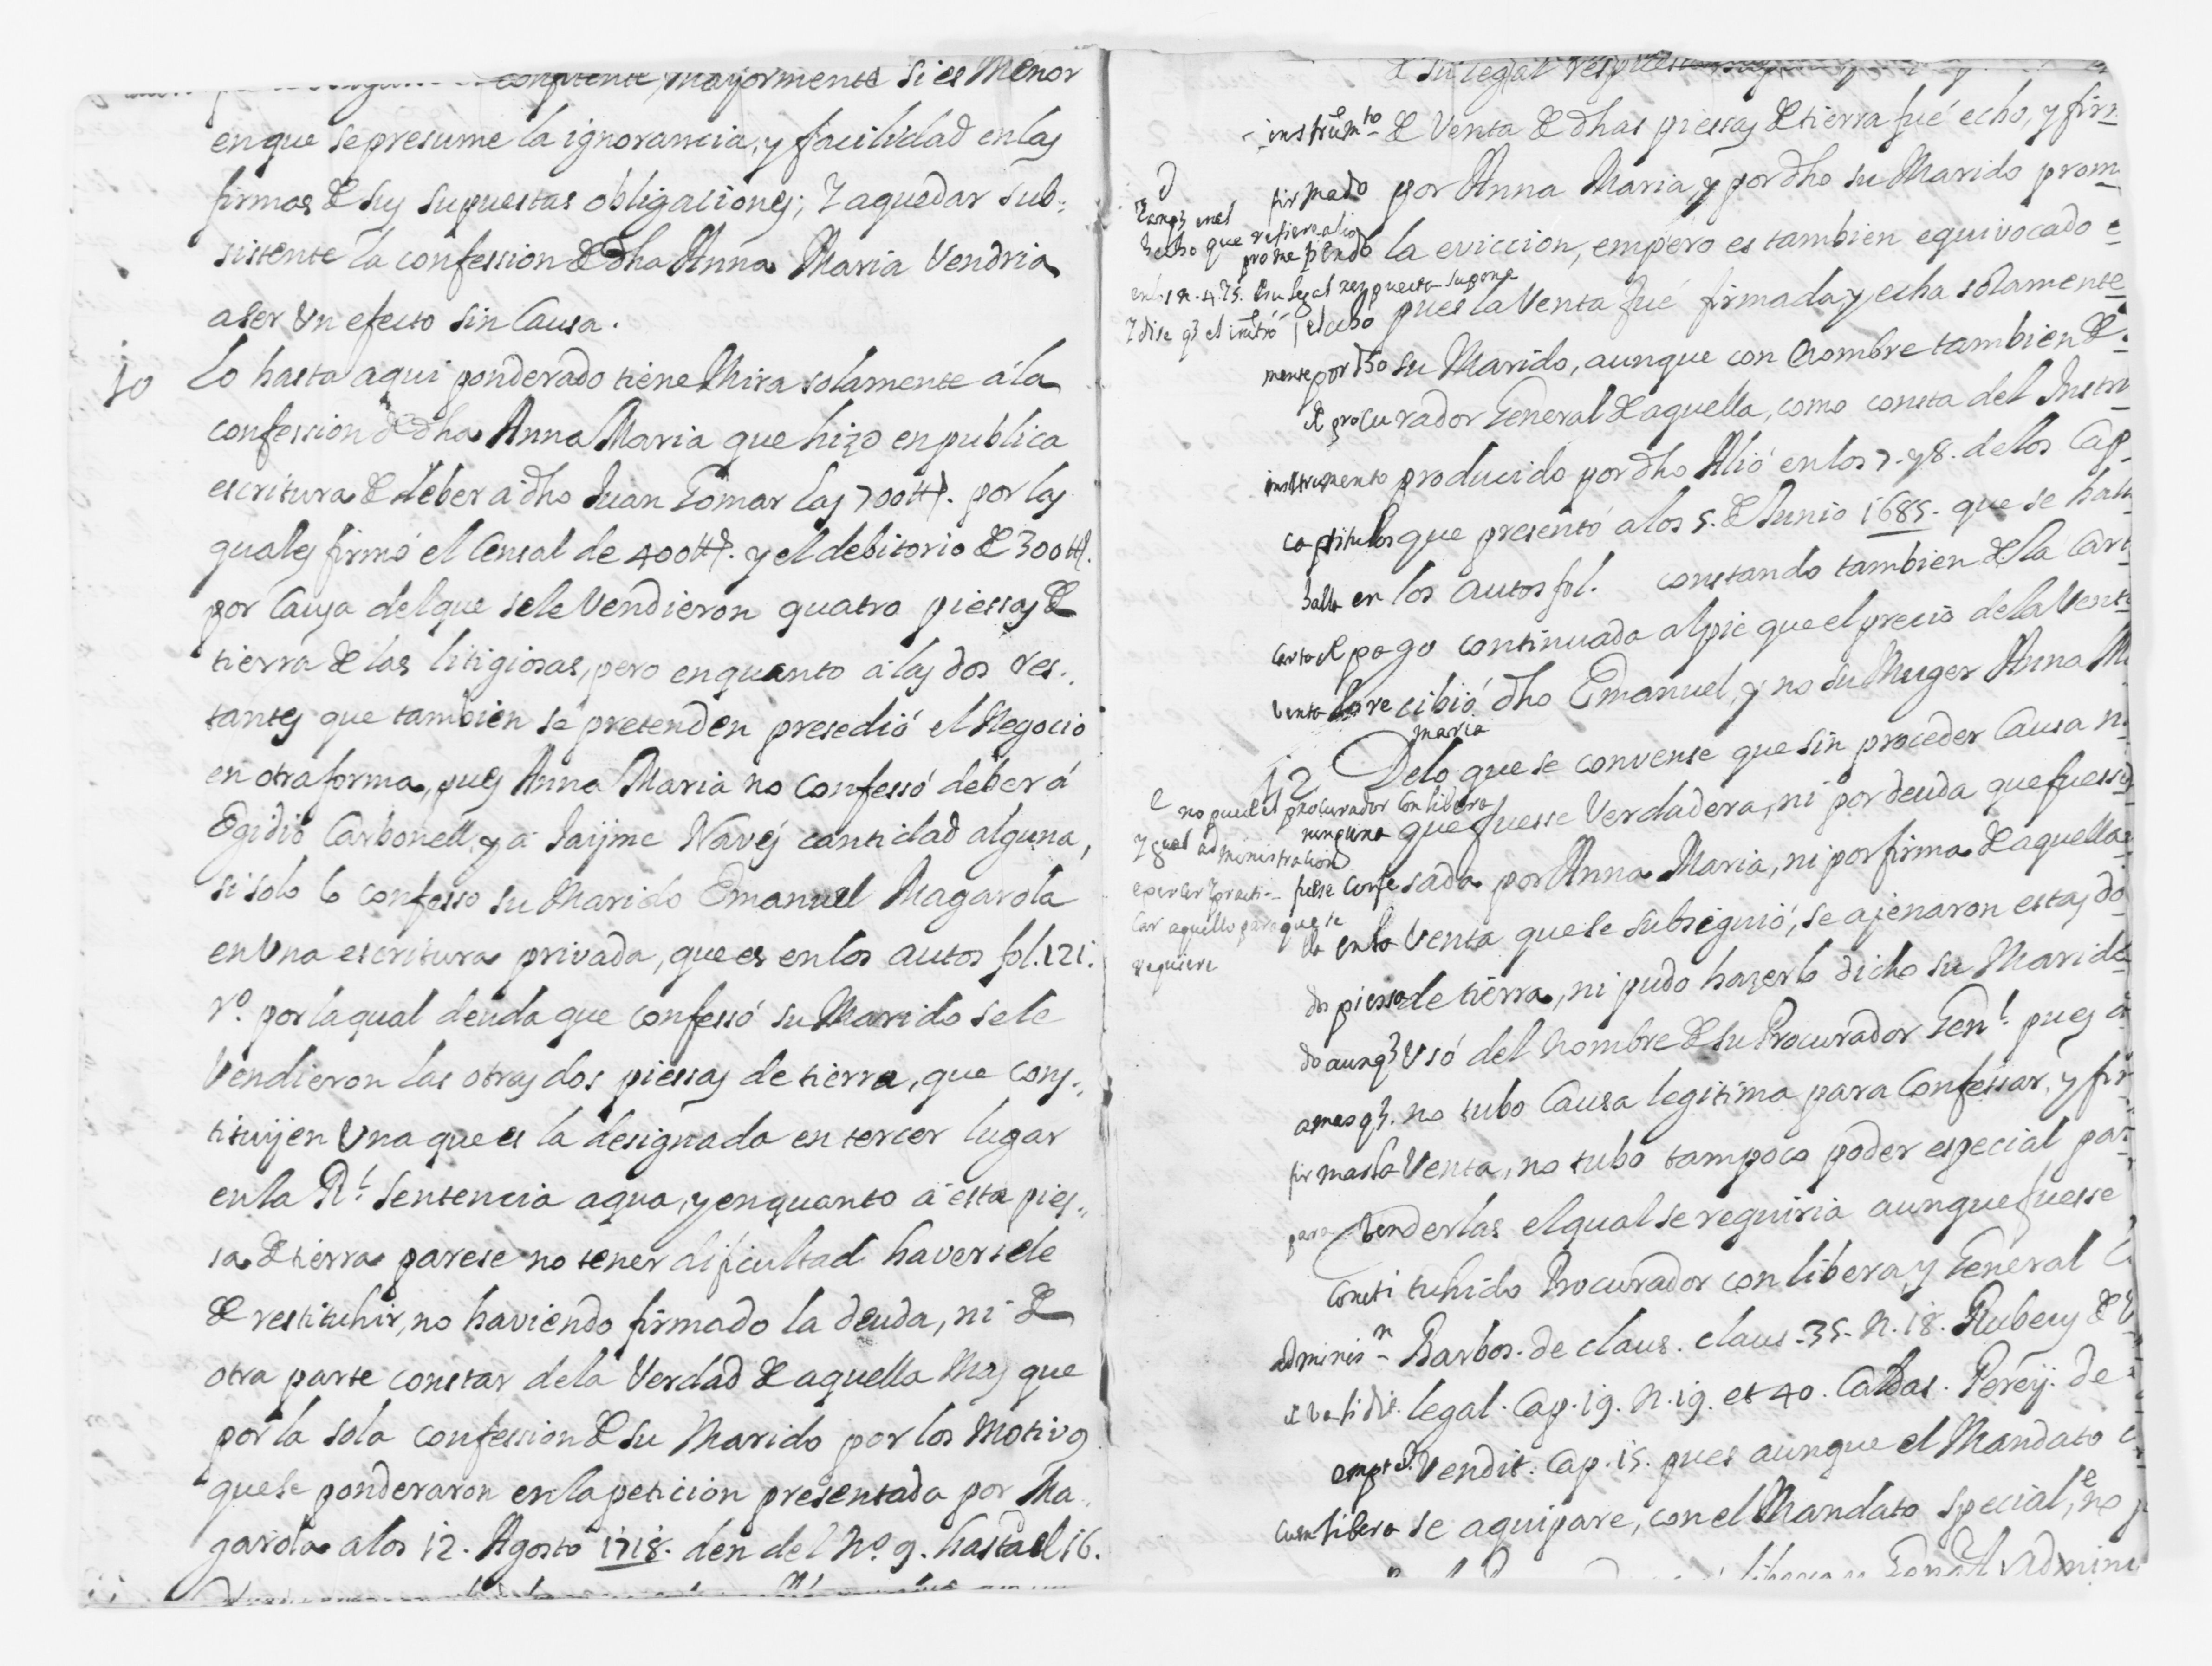 confitente, mayormente si es Menor
en que se presume la ignorancia, y facilidad en las
firmas de sus supuestas obligaciones; Y a quedar sub-
sistente la confession de dha Anna Maria Vendria
a ser Un efecto sin Causa.
10 Lo hasta aqui ponderado tiene Mira solamente á la
confession de dha Anna Maria que hizo en publica
escritura de deber a dho Juan Gomar las 700 ll. por las
quales firmó el Censal de 400 ll. y el debitorio de 300 ll.
por Causa del que se le Vendieron quatro piessas de
tierra de las litigiosas, pero en quanto a las dos res-
tantes que tambien se pretenden presedió el Negocio
en otra forma, pues Anna Maria no Confessó deber á
Egidio Carbonell, y a Jayme Navés cantidad alguna,
si solo lo confesso su Marido Emanuel Magarola
en Una escritura privada, que es en los autos fol. 121.
rº. por la qual deuda que confessó su Marido se le
Vendieron las otras dos piessas de tierra, que cons-
tituyen Una que es la designada en tercer lugar
en la Rl. Sentencia aqua, y en quanto a esta pies-
sa de tierra parese no tener dificultad haversele
de restituhir, no haviendo firmado la deuda, ni de
otra parte constar de la Verdad de aquella Mas que
por la sola confession de su Marido por los Motivos
que se ponderaron en la peticion presentada por Ma-
garola a los 12. Agosto 1718. den del Nº. 9. hasta el 16.
de su legal respuesta
instrumto de Venta de dhas piessas de tierra fué echo, y fir-
firmado por Anna Maria, y por dho su Marido prom-
prometiendo la eviccion, empero es tambien equivocado e-
el echo pues la Venta fué firmada y echa solamente
mente por dho su Marido, aunque con Nombre tambien de
de procurador General de aquella, como consta del Instru-
instrumento producido por dho Alió en los 7. y 8. de los Cap-
capitulos que presentó a los 5. de Junio 1685. que se hall-
halla en los autos fol. constando tambien de la Cart-
carta de pago continuada al pie que el precio de la Vent-
venta lo recibió dho Emanuel, y no su Muger Anna M-
Maria
12 De lo que se convense que sin proceder Causa n-
ninguna que fuesse Verdadera, ni por deuda que fuesse
fuese confesada por Anna Maria, ni por firma de aquella
en la Venta que se subsiguió, se ajenaron estas do-
dos piessas de tierra, ni pudo hazerlo dicho su Marido
do aunq3 Usó del Nombre de su Procurador Genl. pues a
a mas q3. no tubo Causa legitima para Confessar, y fir-
firmar la Venta, no tubo tampoco poder especial par-
para Venderlas el qual se requiria aunque fuesse
constituhido Procurador con libera y General
adminisn Barbos. de claus. claus. 35. N. 18. Rubeus de
legal. Cap. 19. N. 19. et 40. Caldas. Perey. de
empt. Vendit. Cap. 15. pues aunque el Mandato
cum libera se aquipare, con el Mandato special, e no
d
Y aunq3 en el
hecho que refiere alió
en los n. 4. 75. de su legal respuesta supone
Y dise q3 el instro
e no puede el procurador con libera
Y gral administracion
exercer Y practi-
car aquello para que se
requiere